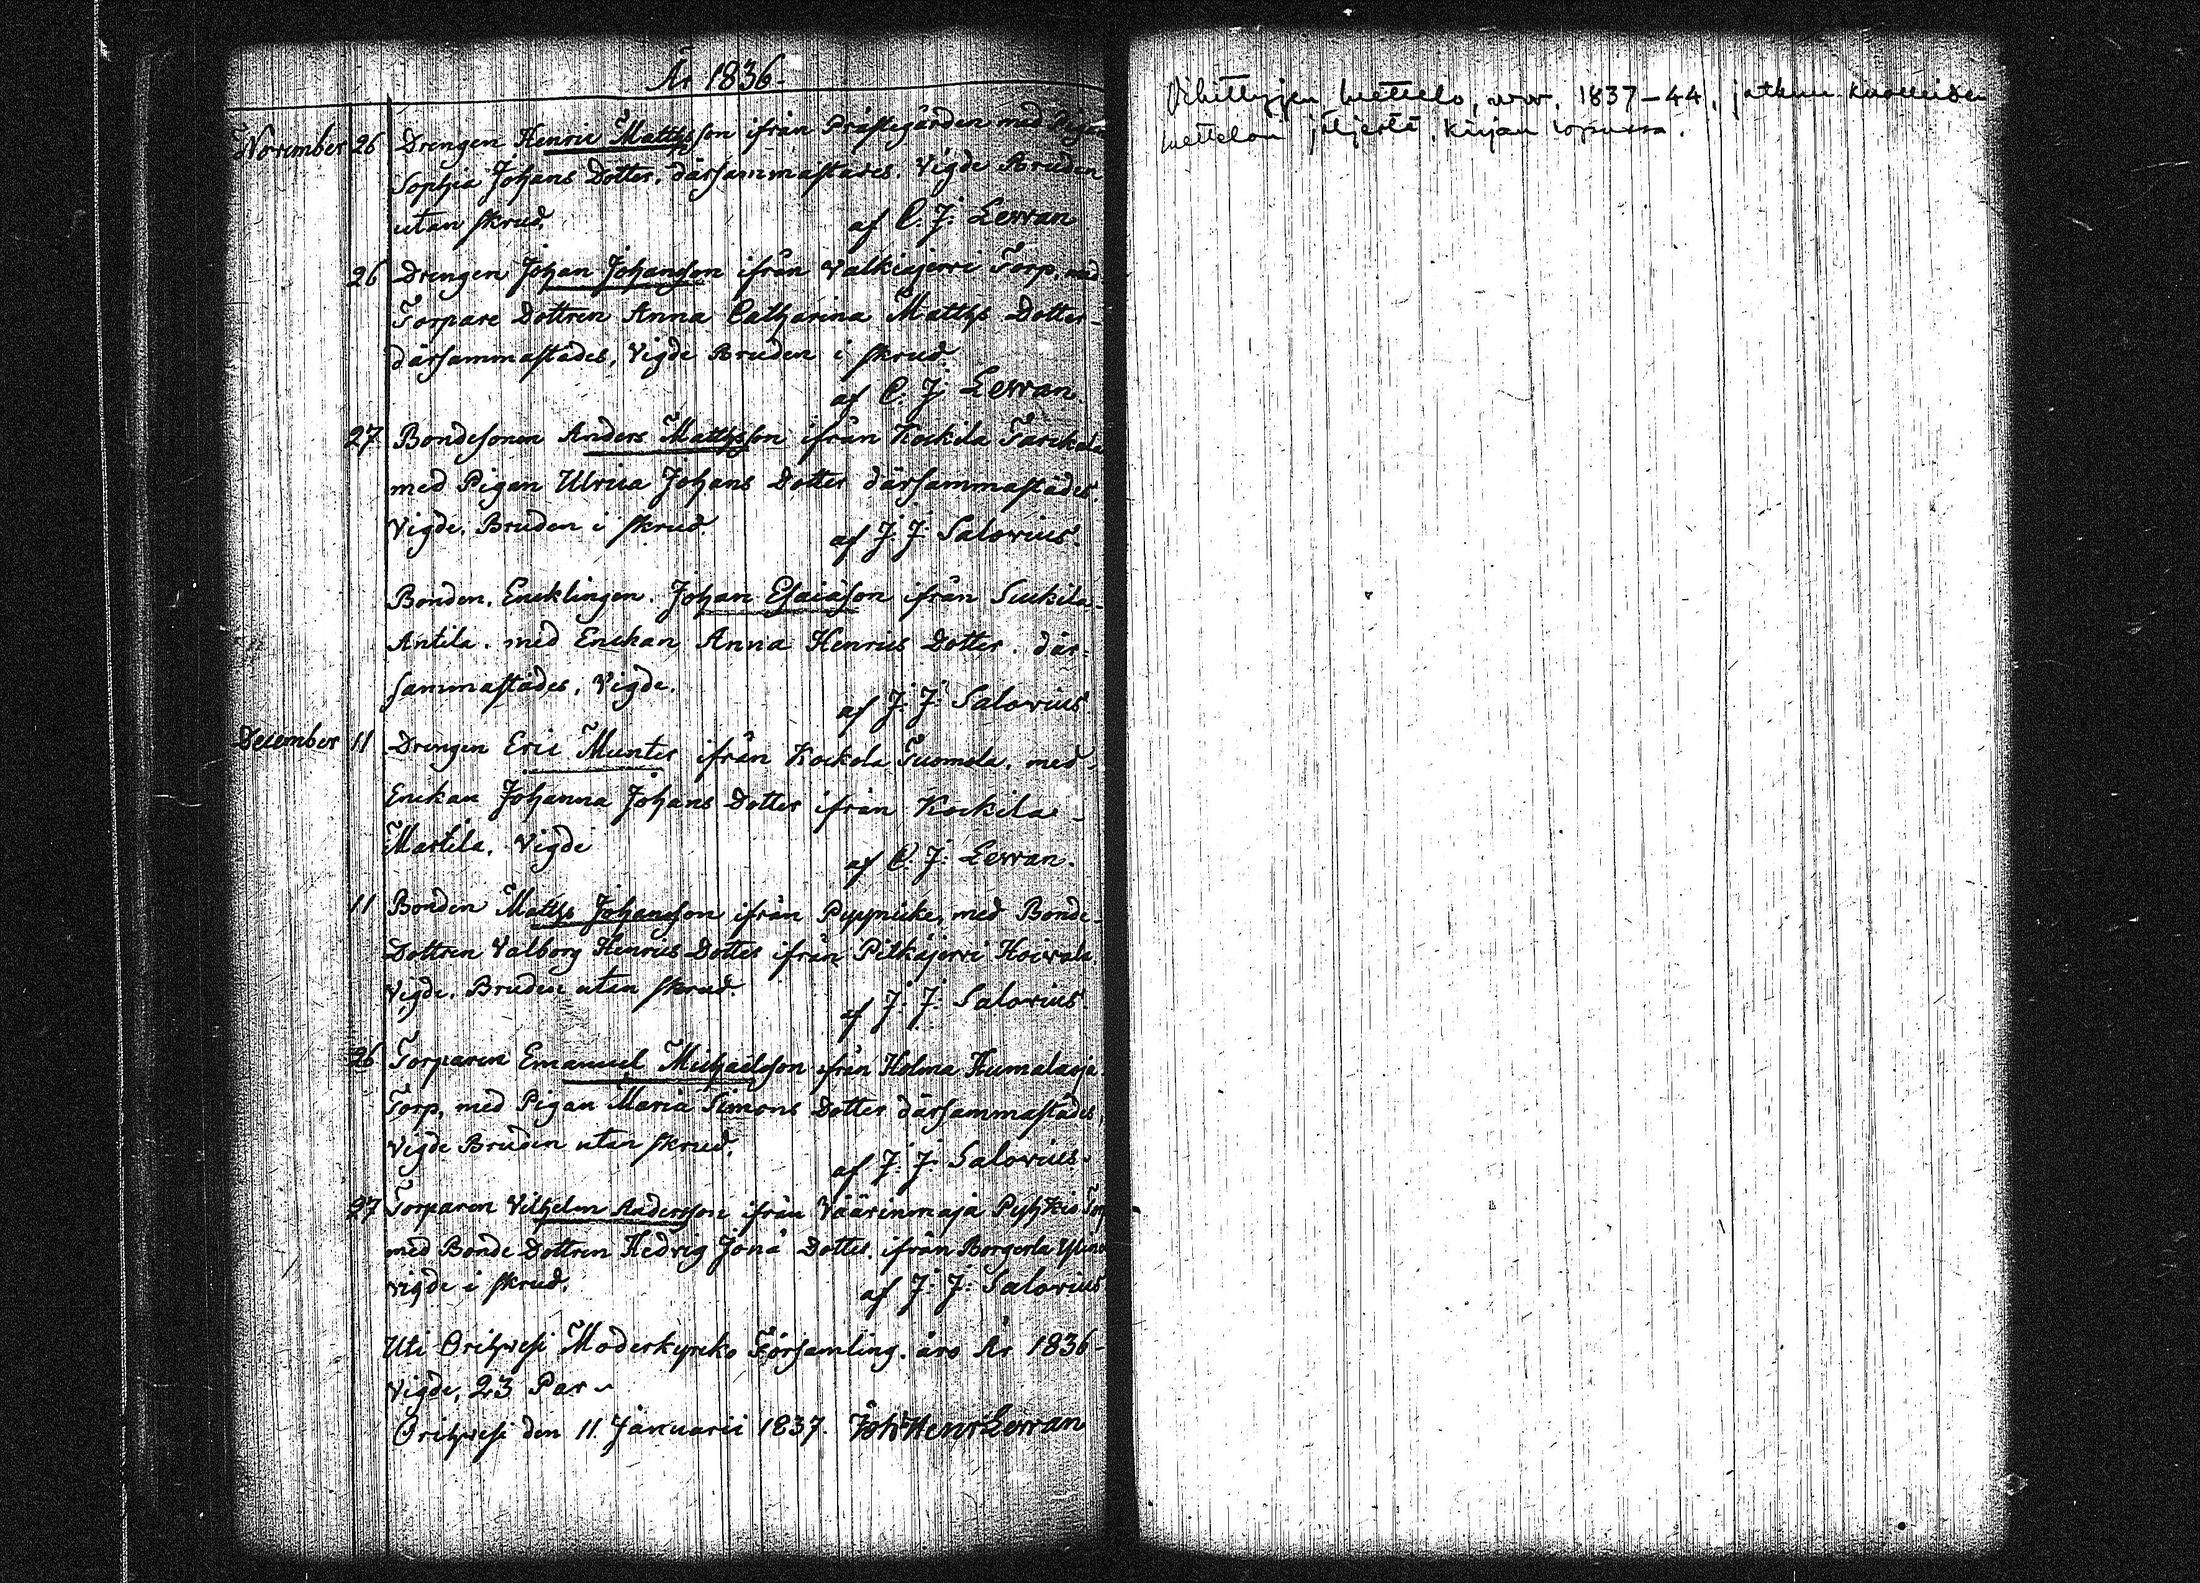 År 1836.
November 26 Drengen Henric Matthsson ifrån Prästegården med Pigan
Sophia Johans Dotter, därsammastädes. Vigde Bruden
utan skrud. af C. J. Lewan
26 Drengen Johan Johansson ifrån Valkiajerwi Torp, med
Torpare Dottren Anna Catharina Matths Dotter
därsammastädes, Vigde Bruden i skrud
af C. J. Lewan.
27 Bondesonen Anders Matthsson ifrån Kockila
med Pigan Ulrica Johans Dotter därsammastädes.
Vigde, Bruden i skrud. af J. J. Salovius.
Bonden, Encklingen. Johan Esaiason ifrån
Antila. med Enckan Anna Henrics Dotter. där-
sammastädes, Vigde. af J. J. Salovius
December 11 Drengen Eric Munter ifrån Kockola Tuomola, med
Enckan Johanna Johans Dotter ifrån Kockila
Martila. Vigde af C. J. Lewan.
11 Bonden Matths Johansson ifrån med Bonde-
Dottren Valborg Henrics Dotter ifrån Pitkäjerwi
Vigde. Bruden utan skrud. af J. J. Salovius.
26 Torparen Emanuel Michaelsson ifrån Holma Humalaoja
Torp, med Pigan Maria Simons Dotter därsammastädes,
Vigde Bruden utan skrud. af J. J. Salovius.
27 Torparen Vilhelm Andersson ifrån Väärinmaja Torp
med Bonde Dottren Hedvig Jonä Dotter. ifrån
vigde i skrud. af J. J. Salovius
Uti Orihwesi Moderkyrko Församling. äro År 1836
Vigde, 23 Par
Orihwesi den 11 Januarii 1837. Joh: Henr Lewan
Vihittyjen luettelo, vv. 1837-44, jatkuu kuolleiden
luettelon jäljestä, kirjan lopussa.